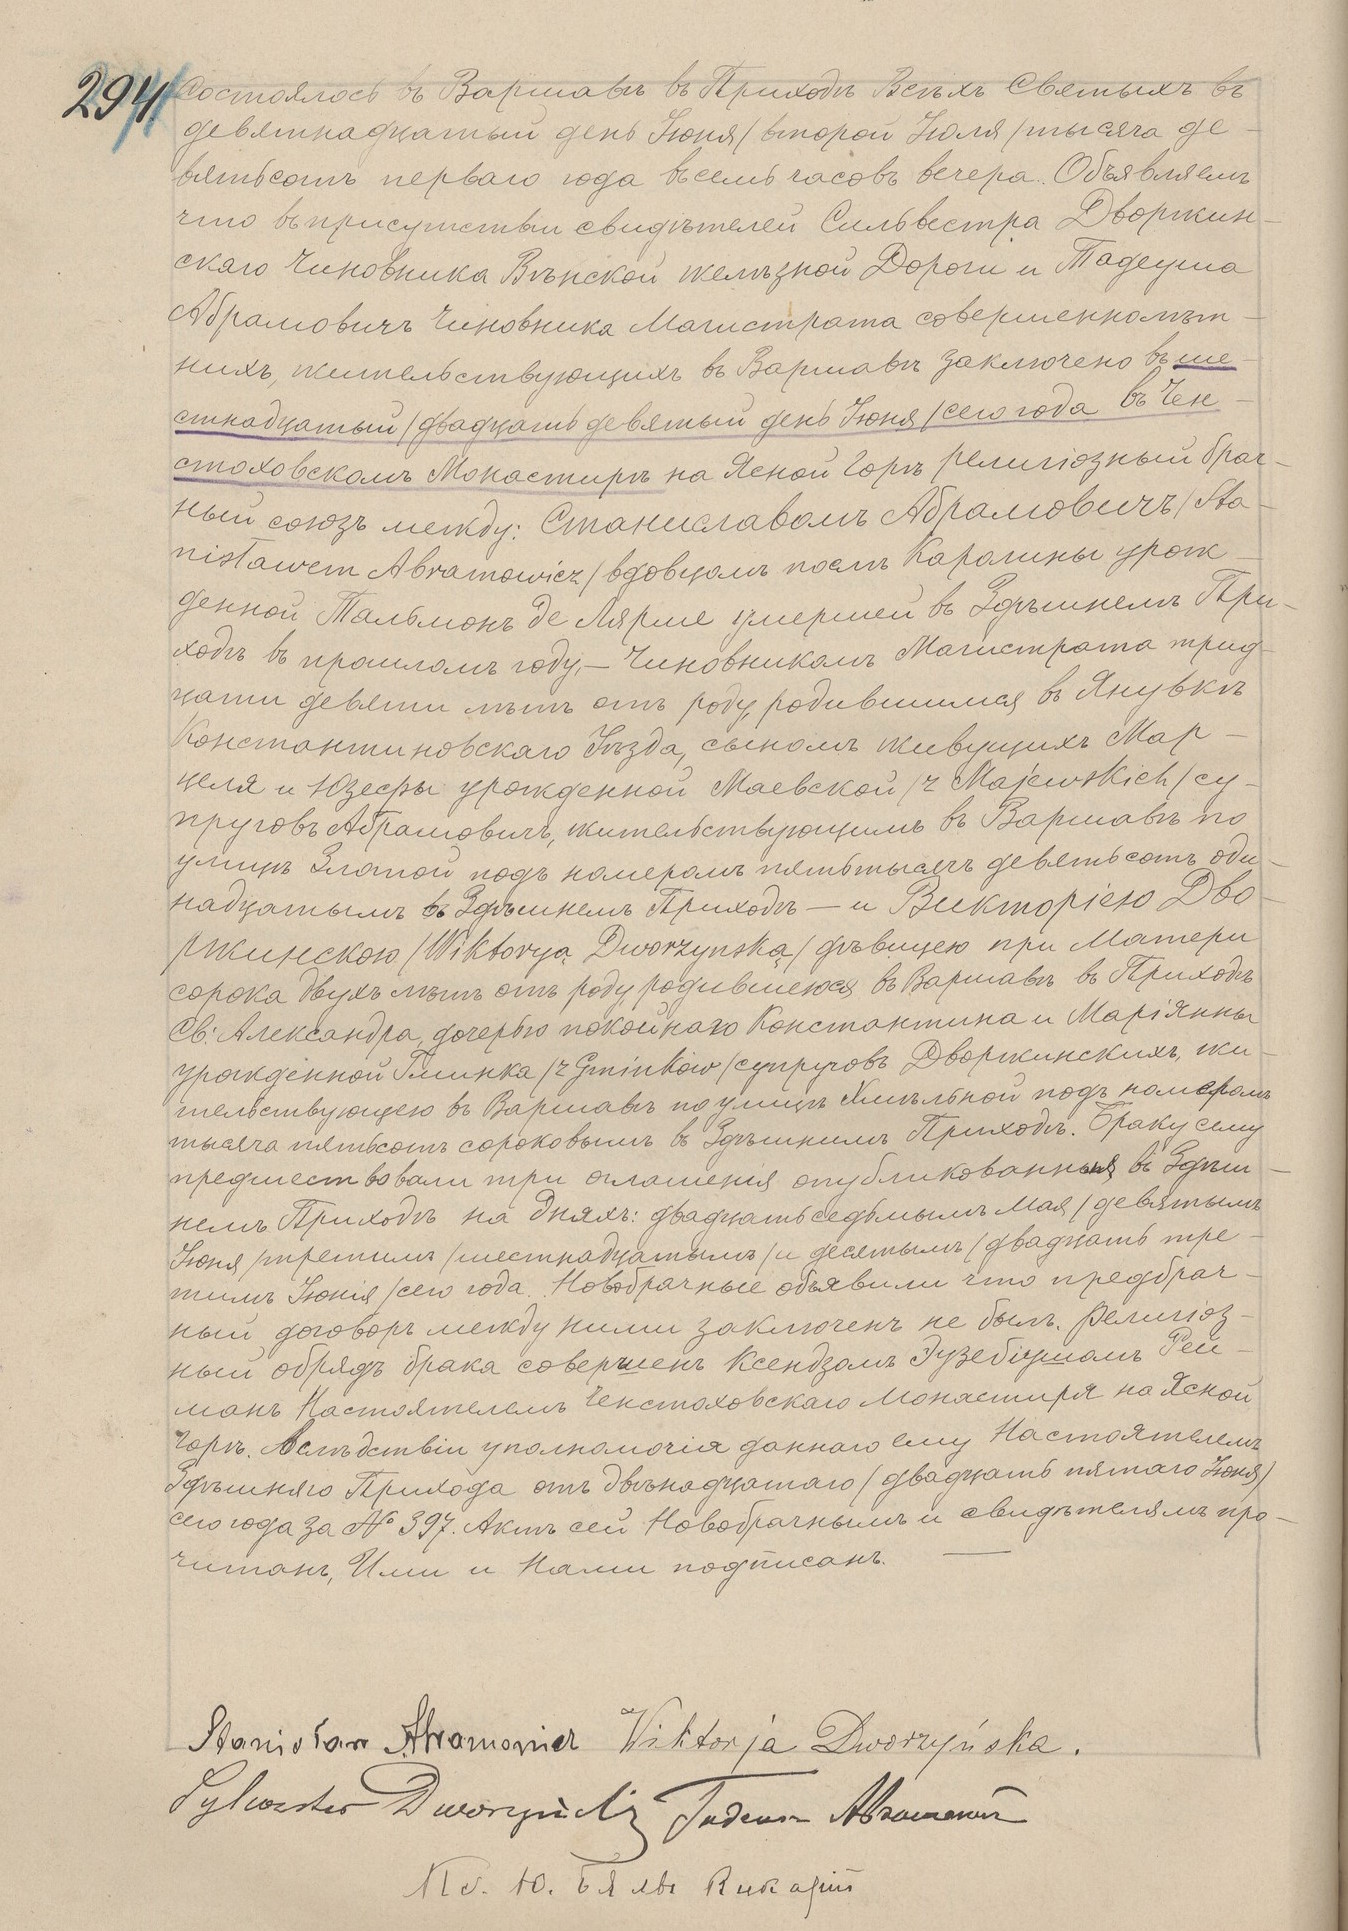 294
Состоялось въ Варшавѣ въ Приходѣ Всѣхъ Святыхъ въ
девятнадцатый день Іюня / второй Іюля / тысяча де-
вятьсотъ перваго года въ семь часовъ вечера. Объявляемъ
что въ присутствіи свидѣтелей Сильвестра Дворжин-
скаго Чиновника Вѣнской желѣзной Дороги и Тадеуша
Абрамовичъ Чиновника Магистрата совершеннолѣт-
нихъ, жительствующихъ въ Варшавѣ заключено въ ше-
стнадцатый / двадцать девятый день Іюня / сего года въ Чен-
стоховскомъ Монастырѣ на Ясной Горѣ религіозный брач-
ный союзъ между: Станиславомъ Абрамовичъ / Sta-
nisławem Abramowicz / вдовцомъ послѣ Каролины урож-
денной Тальмонъ де Лярме умершей въ Здѣшнемъ При-
ходѣ въ прошломъ году, — Чиновникомъ Магистрата трид-
цати девяти лѣтъ отъ роду, родившимся въ Янувкѣ
Константиновскаго Уѣзда, сыномъ живущихъ Мар-
целя и Юзефы урожденной Маевской / z Majewskich / су-
пруговъ Абрамовичъ, жительствующимъ въ Варшавѣ по
улицѣ Златой подъ номеромъ пятьтысячъ девятьсотъ оди-
надцатымъ въ Здѣшнемъ Приходѣ — и Викторіею Дво-
ржинскою / Wiktoryą Dworzynską / дѣвицею при Матери
сорока двухъ лѣтъ отъ роду, родившеюся въ Варшавѣ въ Приходѣ
Св: Александра, дочерью покойнаго Константина и Маріянны
урожденной Гминка / z Gminków / супруговъ Дворжинскихъ, жи-
тельствующею въ Варшавѣ по улицѣ Хмѣльной подъ номеромъ
тысяча пятьсотъ сороковымъ въ Здѣшнимъ Приходѣ. Браку сему
предшествовали три оглашенія опубликованныя въ Здѣш-
немъ Приходѣ на дняхъ: двадцать седьмымъ Мая / девятымъ
Іюня / третимъ / шестнадцатымъ / и десятымъ / двадцать тре-
тимъ Іюнія / сего года. Новобрачные объявили что предбрач-
ный договоръ между ними заключенъ не былъ. Религіоз-
ный обрядъ брака совершенъ Ксендзомъ Эузебіушомъ Рей-
манъ Настоятелемъ Ченстоховскаго Монастиря на Ясной
Горѣ. Вслѣдствіи уполномочія даннаго ему Настоятелемъ
Здѣшняго Прихода отъ двѣнадцатаго / двадцать пятаго Іюня /
сего года за № 397. Актъ сей Новобрачнымъ и свидѣтелямъ про-
читанъ, Ими и Нами подписанъ. —
Stanisław Abramowicz Wiktorja Dworzyńska.
Sylwester Dworzyński Tadeusz Abramowicz
Кс. Ю. Бялы Викарій